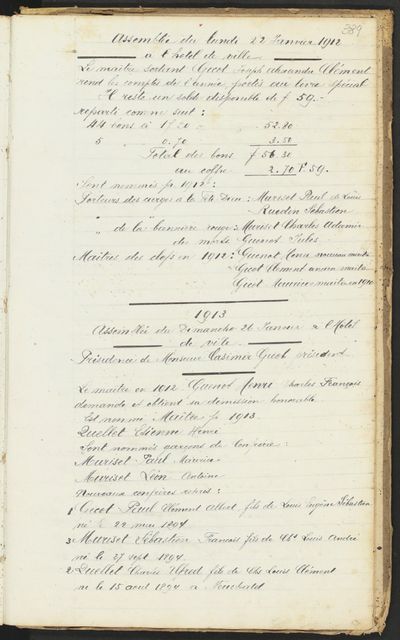 389
Assemblée du lundi 22 Janvier 1912
à l'hôtel de ville.
Le maître sortant Gicot Joseph Alexandre Clément
rend les comptes de l'année portés au livre spécial
Il reste un solde disponible de f 59.-
reparti comme suit :
44 bons à 1.20 52.80
5 0.70 3.50
Total des bons f 56.30
au coffre 2.70 f. 59.
Sont nommés pr 1912 :
Porteurs des cierges à la Fête Dieu : Muriset Paul de Louis
Ruedin Sébastien
" de la bannière rouge : Muriset Charles
des morts Guenot Jules
Maîtres des clefs en 1912 : Guenot Henri nouveau maître
Gicot Clément ancien maître
Gicot Maurice maître en 1910
1913
Assemblée du Dimanche 26 Janvier à l'Hôtel
de ville.
Présidence de Monsieur Casimir Gicot président
Le maître en 1912 Guenot Henri Charles François
demande et obtient sa démission honorable.
Est nommé Maître pr 1913
Quellet Etienne Henri
Sont nommés garçons de Confrérie :
Muriset Paul Maurice
Muriset Léon Antoine
Nouveaux confrères reçus :
1 Gicot Paul Clément Albert fils de Louis Eugène Sébastien
né le 22 mai 1894
3 Muriset Sébastien François fils de Chs Louis André
né le 27 sept. 1894
2 Quellet Charles Alfred fils de Chs Louis Clément
né le 15 août 1894 à Neuchâtel